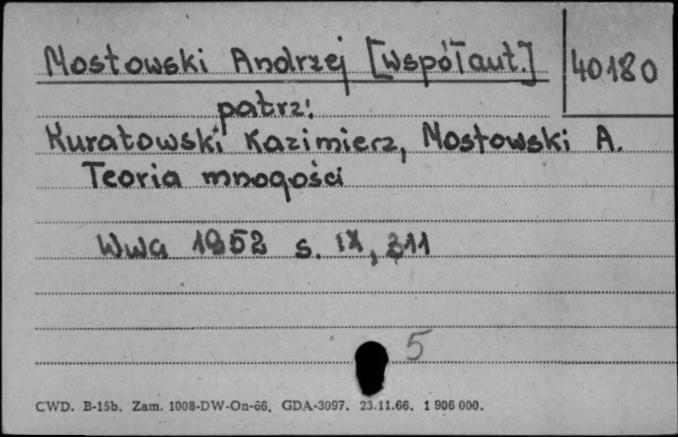 Mostowski Andrzej [współaut.]
40180
patrz:
Kuratowski Kazimierz, Mostowski A.
Teoria mnogości
Wwa 1952 s. IX, 311
5
CWD. B-15b. Zam. 1008-DW-On-66. GDA-3097. 23.11.66. 1 906 000.